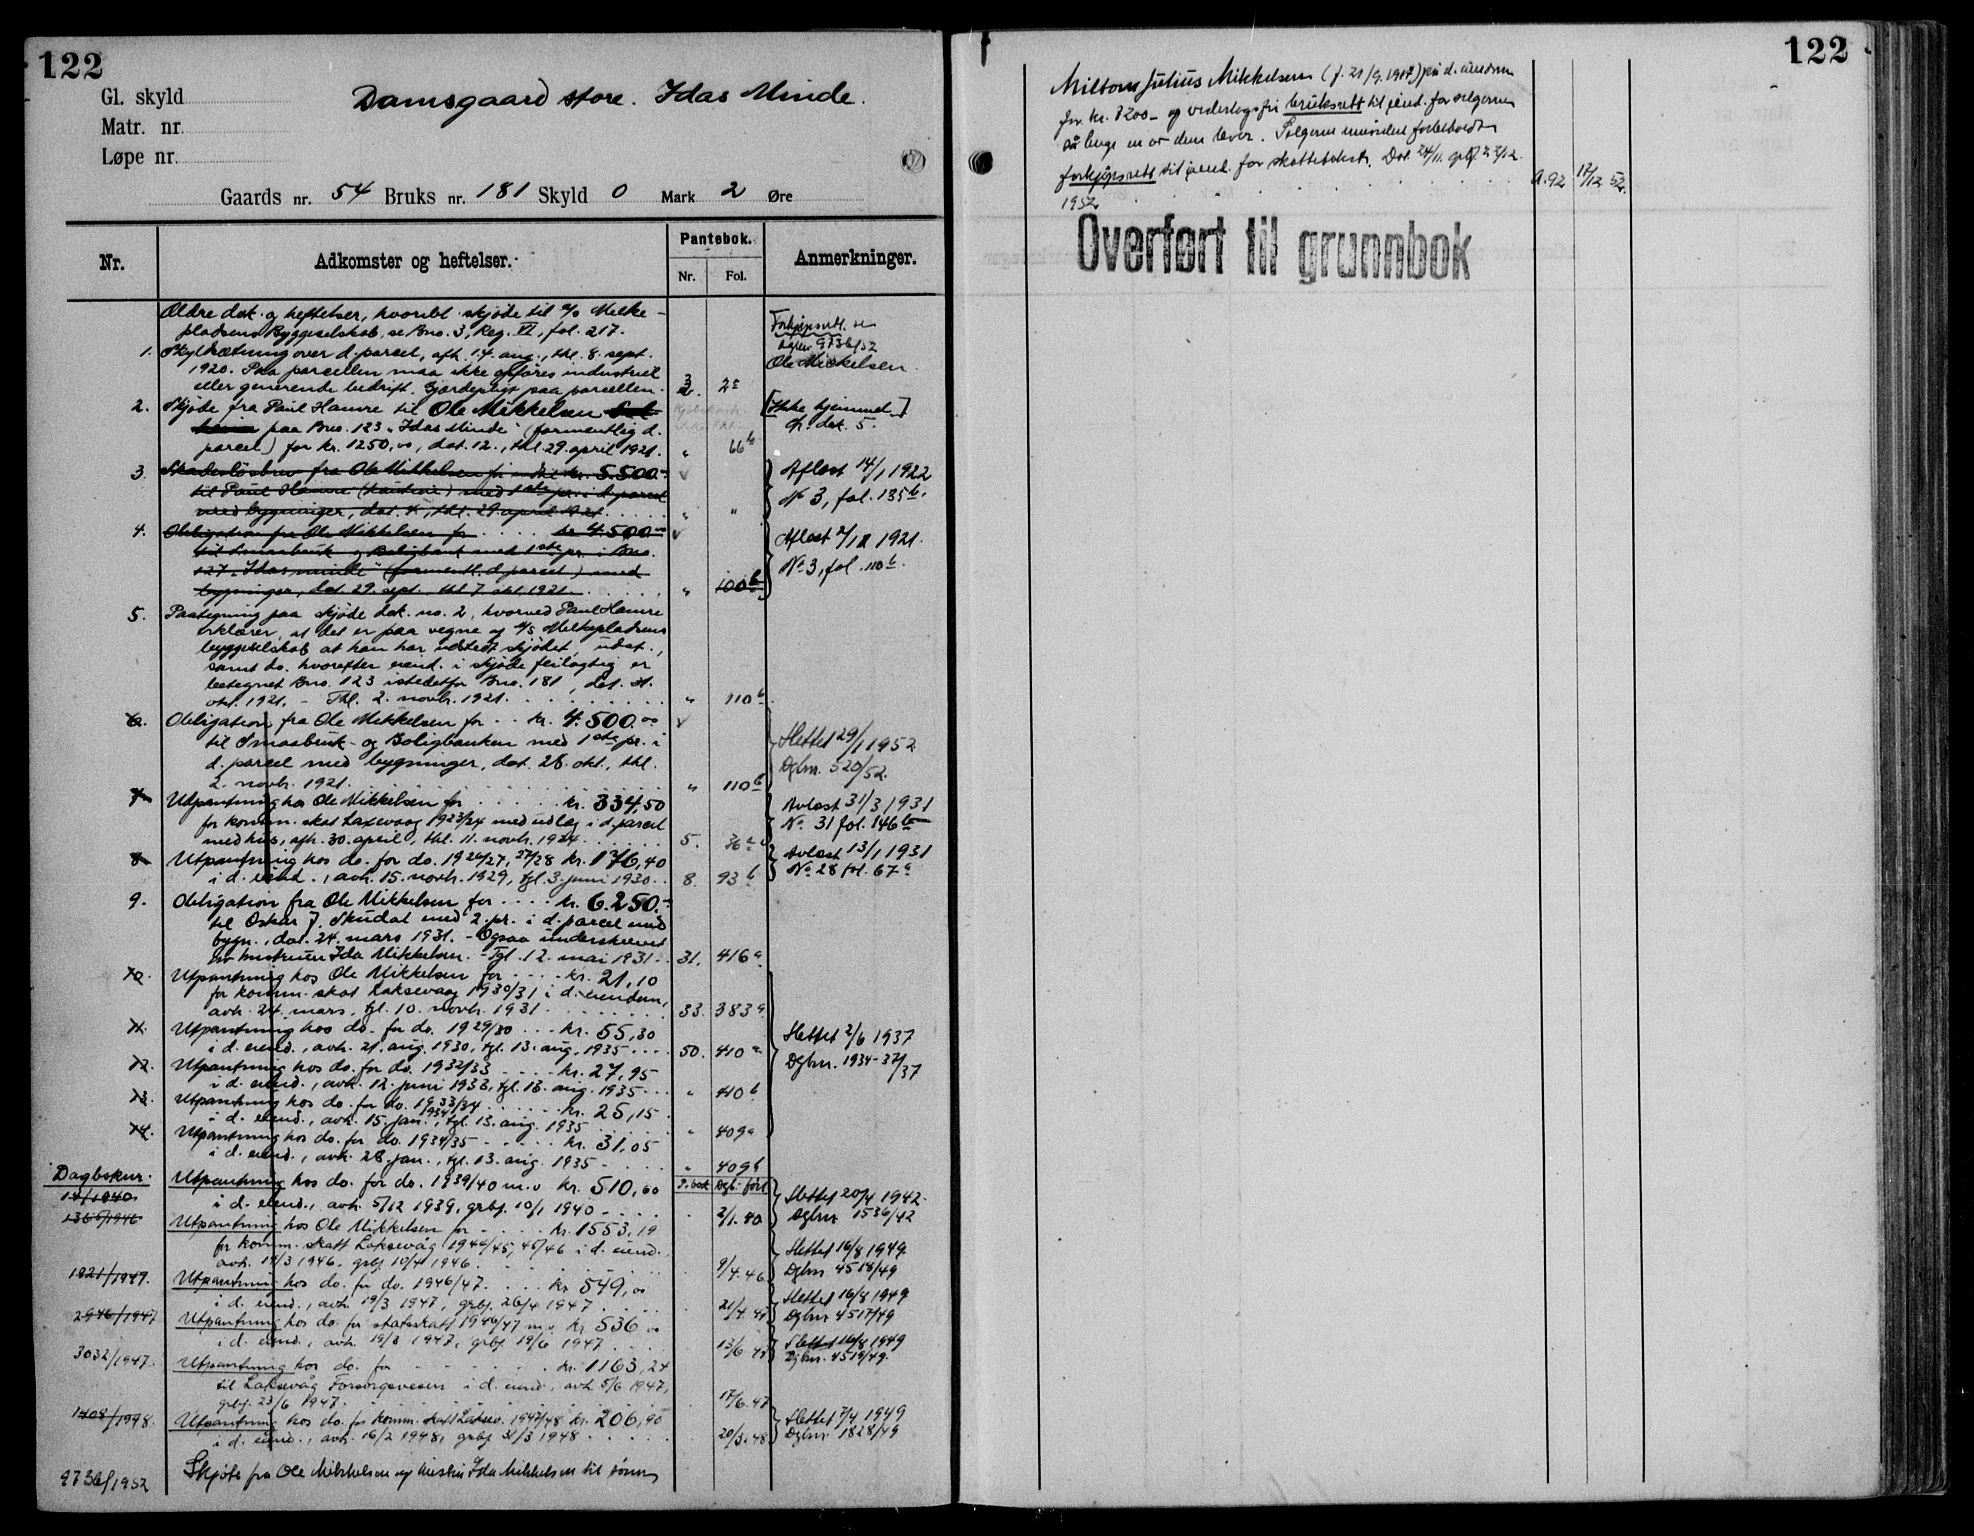 122
Gl. skyld
Damsgaard store. Idas Minde.
Matr. nr.
Løpe nr.
Gaards nr. 54 Bruks nr. 181 Skyld 0 Mark 2 Øre
Nr.
Adkomster og heftelser.
Pantebok.
Nr. Fol.
Anmerkninger.
Ældre dok. og heftelser, hvoribl. skjøde til a/s Melke-
pladsens Byggeselskab, se Bno. 3, Reg. VI, fol. 217.
Forkjøpsrett. se
dgbnr 9736/52
1. Skyldsætning over d. parcel, afh. 14. aug., thl. 8. sept.
1920. Paa parcellen maa ikke opføres industriel
eller generende bedrift. Gjærdepligt paa parcellen. 3 2a
Ole Mikkelsen.
2. Skjøde fra Paul Hamre til Ole Mikkelsen
paa Bno. 123 "Idas Minde" (formentlig d.
parcel) for kr. 1250,00, dat. 12., thl. 29 april 1921. " 66b
[Ikke hjemmel.]
cfr. dok. 5.
3. Skadesløsbrev fra Ole Mikkelsen for kr. 5.500.-
til Paul Hamre med 1ste pr. i d. parcel
med bygninger, dat. thl. 29 april 1921 " "
Aflæst 14/1 1922
No 3, fol. 135b.
4. Obligation fra Ole Mikkelsen for kr. 4.500.00
til Smaabruk og Boligbank med 1ste pr. i Bno.
127 "Idas minde" (formentl. d. parcel) med
bygninger, dat. 29. sept. thl. 7. okt. 1921. " 100b
Aflæst 2/11 1921.
No 3, fol. 110b.
5. Paategning paa skjøde dok. no. 2, hvorved Paul Hamre
erklærer, at det er paa vegne af a/s Melkepladsens
byggeselskab at han har udstedt skjødet, udst.,
samt do. hvorefter eiend. i skjøde feilagtig er
betegnet Bno. 123 istedetfor Bno. 181, dat.
okt. 1921. - Thl. 2. novbr. 1921. " 110b
6. Obligation fra Ole Mikkelsen for kr. 4.500.00
til Smaabruk- og Boligbanken med 1ste pr. i
d. parcel med bygninger, dat. 28. okt., thl.
2. novbr. 1921. " 110b
Slettet 29/1 1952
Dgbnr. 520/52.
7. Utpantning hos Ole Mikkelsen for kr. 334,50
for komm. skat Laxevaag 1923/24 med udlæg i d. parcel
med hus, afh. 30. april, thl. 11. novbr. 1924. 5. 36a
Avlæst 31/3 1931
No. 31 fol. 146b
8. Utpantning hos do. for do. 1926/27, 27/28 kr. 176,40
i d. eiend., avh. 15. novbr. 1929, tgl. 3. juni 1930. 8. 93b
Avlæst 13/1 1931
No 28 fol. 67a
9. Obligation fra Ole Mikkelsen for kr. 6.250.-
til Oskar J. Skudal med 2. pr. i d. parcel med
bygn., dat. 24. mars 1931. - Ogsaa underskrevet
av hustruen Ida Mikkelsen. - Tgl. 12. mai 1931. 31. 416a
10. Utpantning hos Ole Mikkelsen for kr. 21,10
for komm. skat Laksevaag 1930/31 i d. eiendom,
avh. 24. mars, tgl. 10. novbr. 1931. 33. 383a
11. Utpantning hos do. for do. 1929/30 kr. 55,30
i d. eiend., avh. 21. aug. 1930, tgl. 13. aug. 1935 50. 410a
12. Utpantning hos do. for do. 1932/33 kr. 27,95
i d. eiend., avh. 12. juni 1933, tgl. 13. aug. 1935 " 410b
13. Utpantning hos do. for do. 1933/34 kr. 25,15
i d. eiend., avh. 15. jan. 1934, tgl. 13. aug. 1935 " 409a
14. Utpantning hos do. for do. 1934/35 kr. 31,05
i d. eiend., avh. 28. jan., tgl. 13. aug. 1935 " 409b
Slettet 2/6 1937
Dgbnr. 1934-37/37
Dagboknr. P.bok Dgb. ført
14/1940 Utpantning hos do. for do. 1939/40 m.v. kr. 510,60
i d. eiend., avh. 5/12 1939, grbf. 10/1 1940 2/1.40
Slettet 20/4 1942.
Dgbnr 1536/42
1366/1946 Utpantning hos Ole Mikkelsen for kr. 1553,19
for komm. skatt Laksevåg 1944/45, 45/46 i d. eiend.
avh. 19/3 1946, grbf. 10/4 1946. 9/4.46
Slettet 16/8 1949
Dgbnr 4518/49
1921/1947. Utpantning hos do. for do. 1946/47. kr 549,00
i d. eiend., avh. 19/3 1947, grbf. 26/4 1947 21/4.47
Slettet 16/8 1949
Dgbnr 4517/49
2946/1947 Utpantning hos do. for statsskatt 1946/47 m.v. kr 536 00
i d. eiend., avh. 19/3 1947, grbf. 19/6 1947 13/6.47
Slettet 16/8 1949
Dgbnr. 4519/49.
3032/1947. Utpantning hos do. for kr. 1163,24
til Laksevåg Forsorgsvesen i d. eiend., avh. 5/6 1947,
grbf. 23/6 1947. 17/6.47
1408/1948. Utpantning hos do. for komm. skatt Laksev. 1947/48 kr. 206,90
i d. eiend., avh. 16/2 1948, grbf. 31/3 1948 20/3.48
Slettet 7/4 1949
Dgbnr 1828/49
9736/1952 Skjøte fra Ole Mikkelsen og hustru Ida Mikkelsen til sønn
122
Miltom Julius Mikkelsen (f. 21/9.1917) på d. eiendom
for kr. 7200.- og vederlagsfri bruksrett til eiend. for selgerne
så lenge en av dem lever. Selgerne forbeholdt
forkjøpsrett til eiend. for skattetakst. Dat. 24/11. grbf. 23/12.
1952. A.92 17/12 52.
Overført til grunnbok